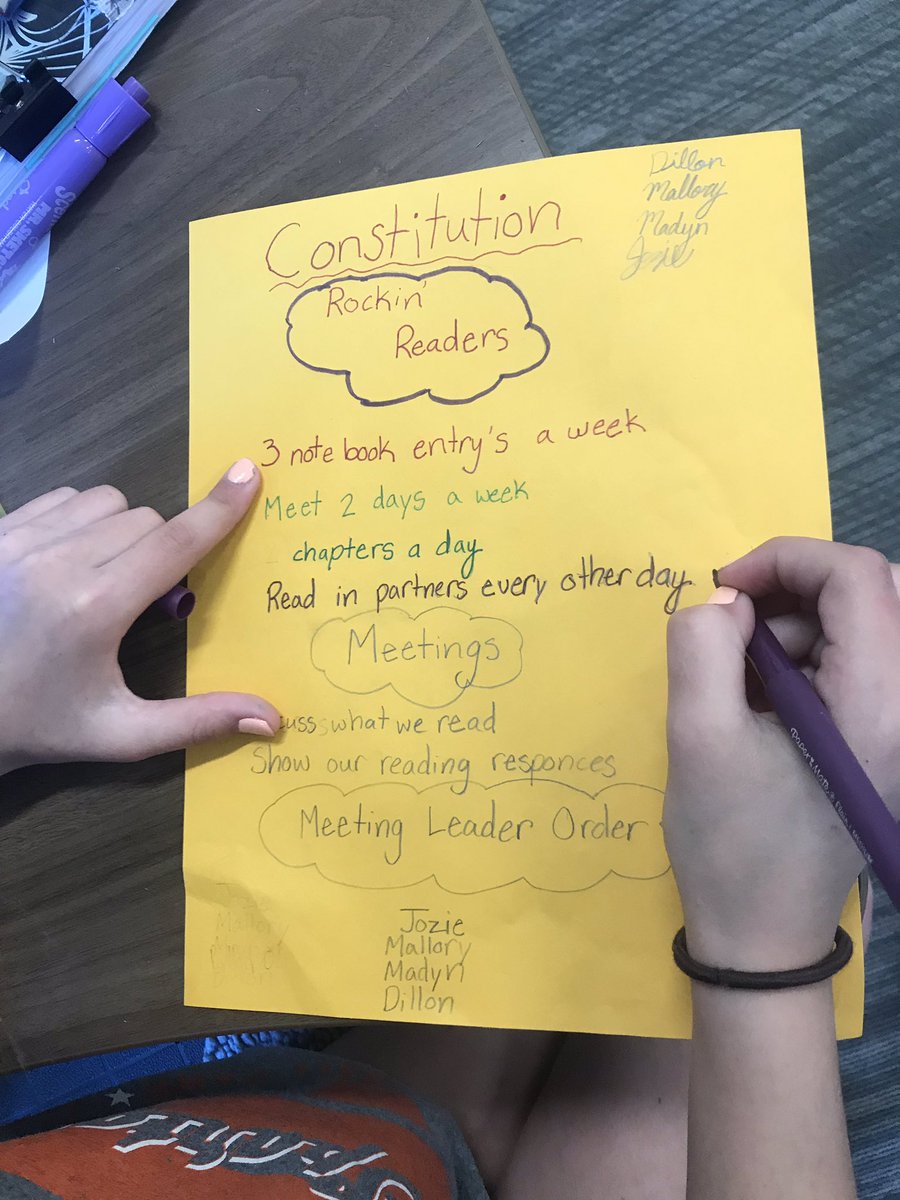 Constitution
Dillon
Mallory
Madyn
Jozie
Rockin'
Readers
3 note book entry's a week
Meet 2 days a week
chapters a day
Read in partners every other day
Meetings
cuss what we read
Show our reading responces
Meeting Leader Order
Jozie
Mallory
Madyn
Dillon
Mallory
MR. SKETCH